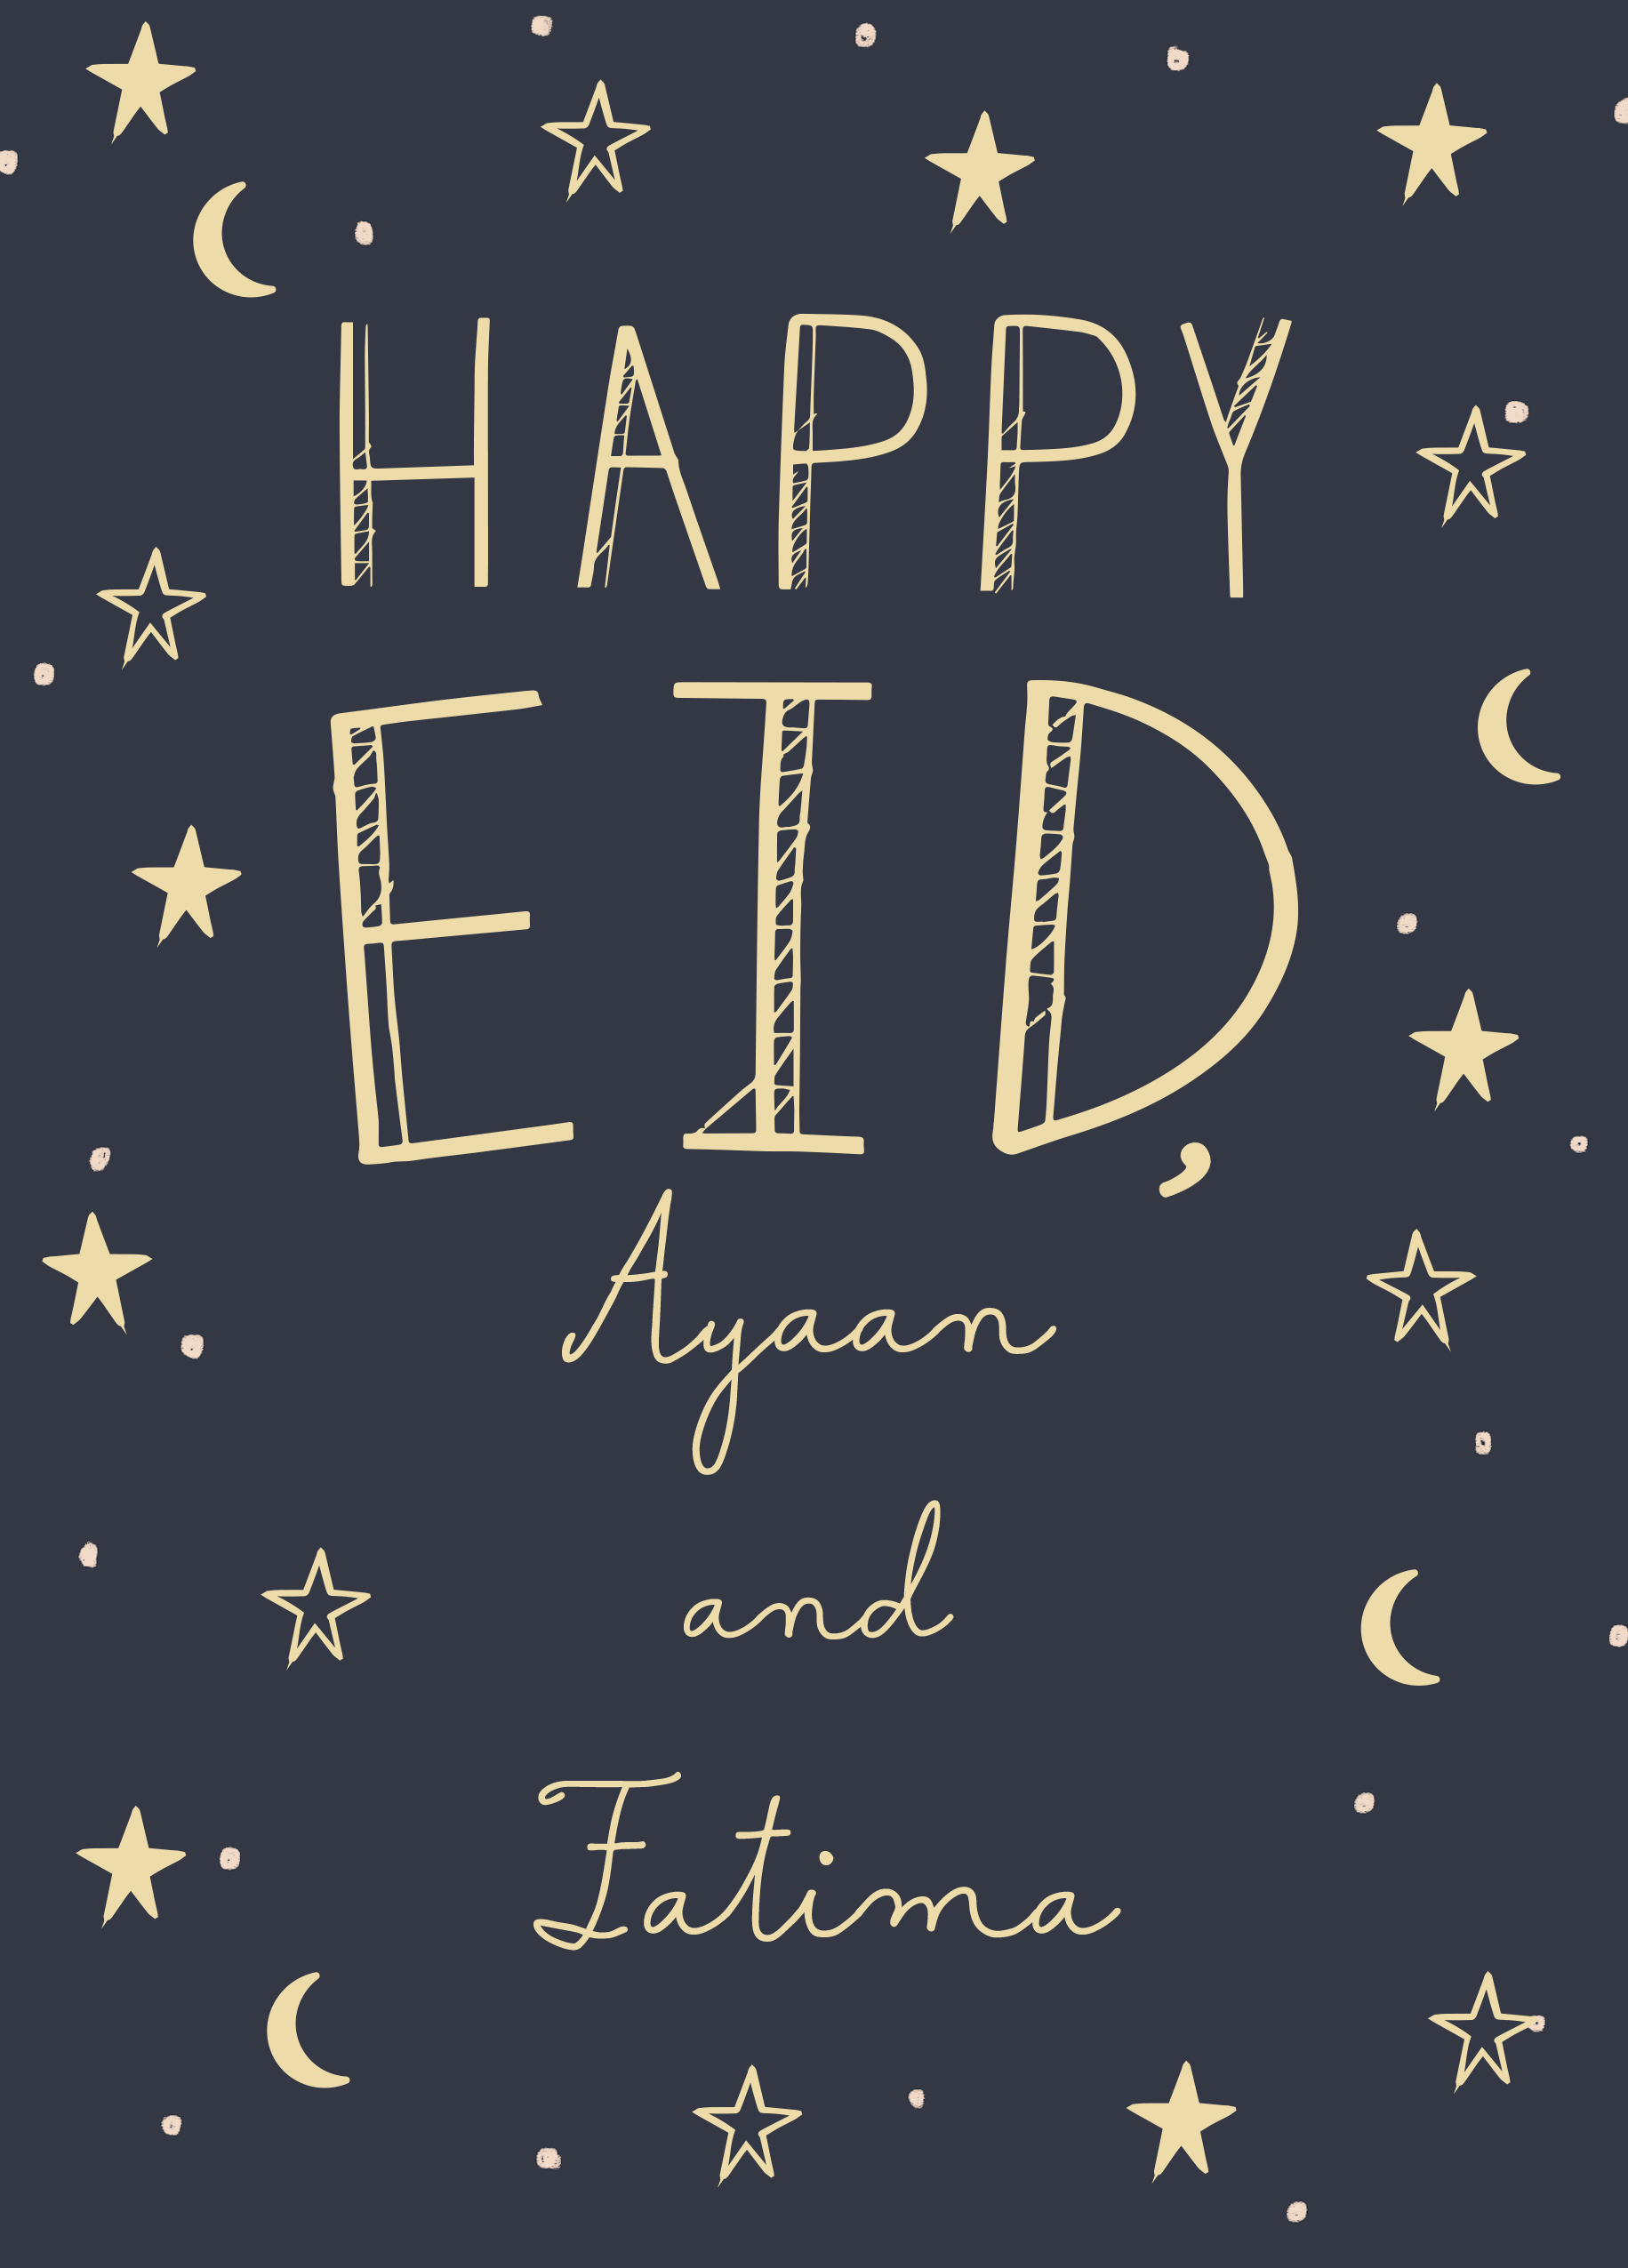 HAPPY
EID,
Ayaan
and
Fatima